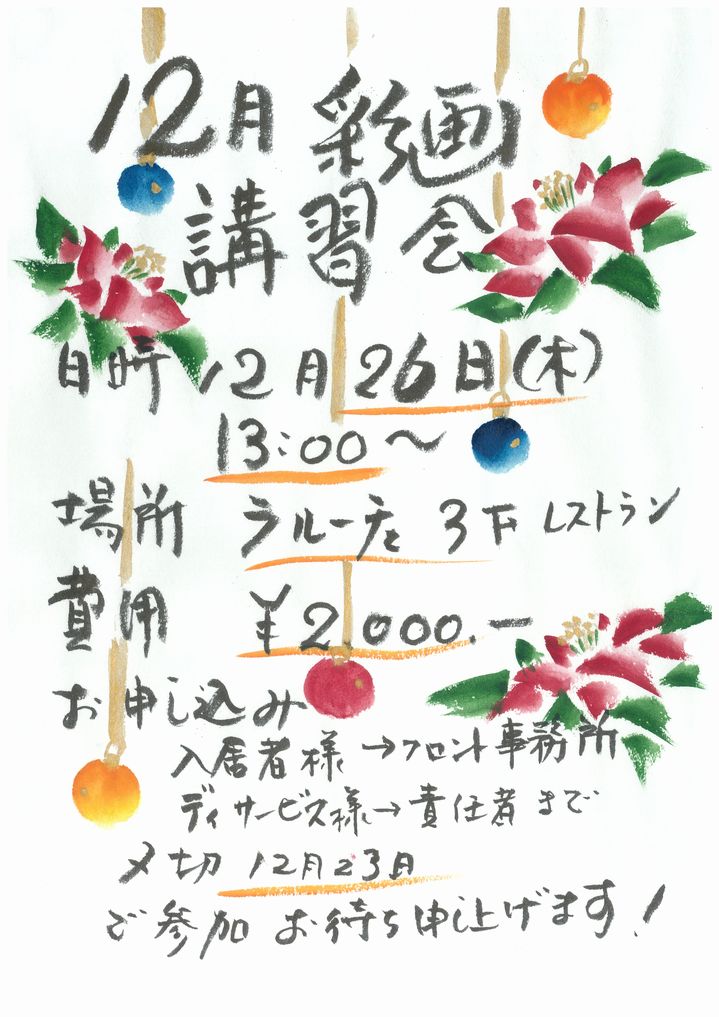 12月 彩画
講習会
日時 12月26日(木)
13:00〜
場所 ラルーチェ 3F レストラン
費用 ¥2,000.-
お申し込み
入居者様→フロント事務所
ディサービス様→責任者まで
〆切 12月23日
ご参加 お待ち申上げます!